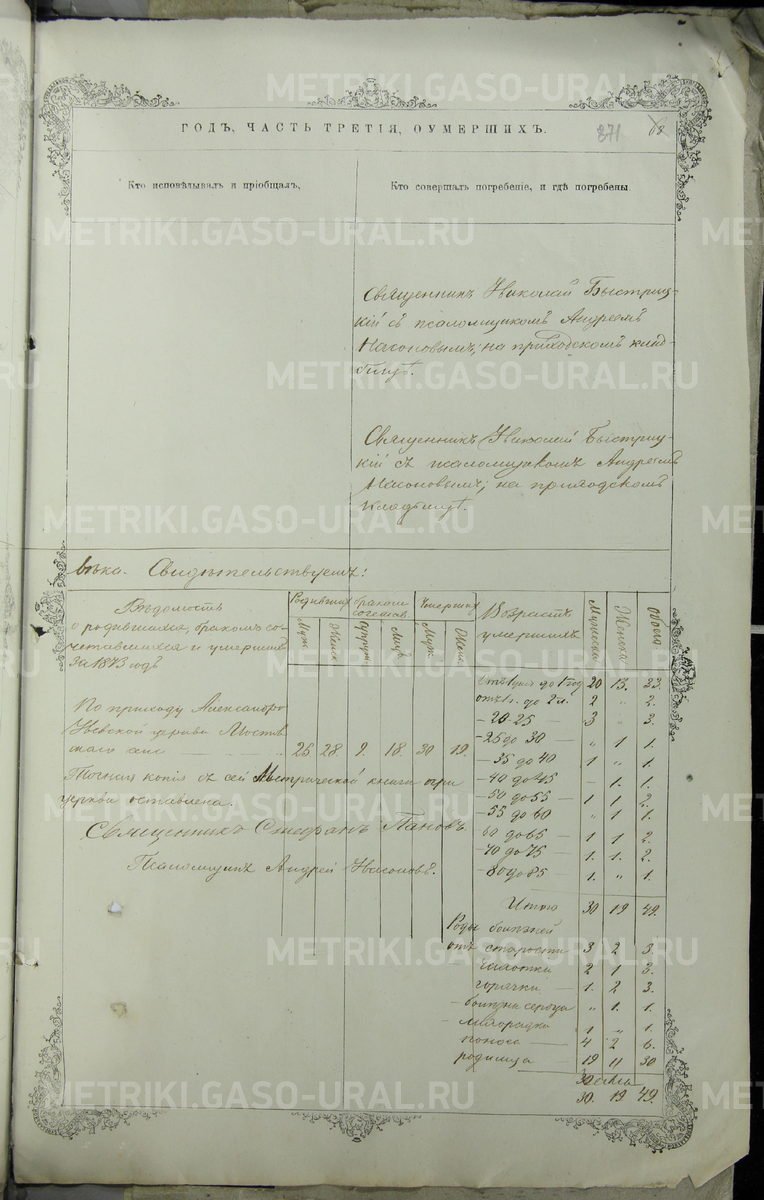 ГОДЪ, ЧАСТЬ ТРЕТІЯ, О УМЕРШИХЪ.
371
68
Кто исповѣдывалъ и пріобщалъ,
Кто совершалъ погребеніе, и гдѣ погребены
Священникъ Николай Быстриц-
кій съ псаломщикомъ Андреемъ
Насоновымъ; на приходскомъ клад-
бищѣ.
Священникъ Николай Быстриц-
кій съ псаломщикомъ Андреемъ
Насоновымъ; на приходскомъ
кладбищѣ.
вѣка. Свидѣтельствуемъ:
Вѣдомость
о родившихся, бракомъ со-
четавшихся и умершихъ
за 1873 годъ
Родившихся
Муж.
Женск.
бракомъ
Умершихъ
Муж.
Женс.
Возрастъ
умершихъ
Мужеска
Женска
Обоего
По приходу Александро
Невской церкви Мостов
скаго села 25 28. 9. 18. 30 19.
до 1 год 20 13. 33.
до 2 л. 2 " 2.
- 20 25 - 3 " 3.
- 25 до 30 - " 1 1.
- 35 до 40 1 " 1.
- 40 до 45 - 1. 1.
- 50 до 55 - 1 1 2.
- 55 до 60 " 1 1.
60 до 65 - 1 1 2.
- 70 до 75 - 1. 1. 2.
- 80 до 85 - 1. " 1.
Итого 30 19 49.
Точная копія съ сей Метрической книги при
церкви оставлена.
Священникъ Стефанъ Пановъ.
Псаломщикъ Андрей Насоновъ.
Роды болѣзней
отъ старости 3 2
чахотки 2 1 3.
горячки - 1. 2 3.
- болѣзни сердца " 1. 1.
- лихорадки 1 " 1.
поноса 4 2 6.
родимца 19 11 30
30. 19 49.
METRIKI.GASO-URAL.RU